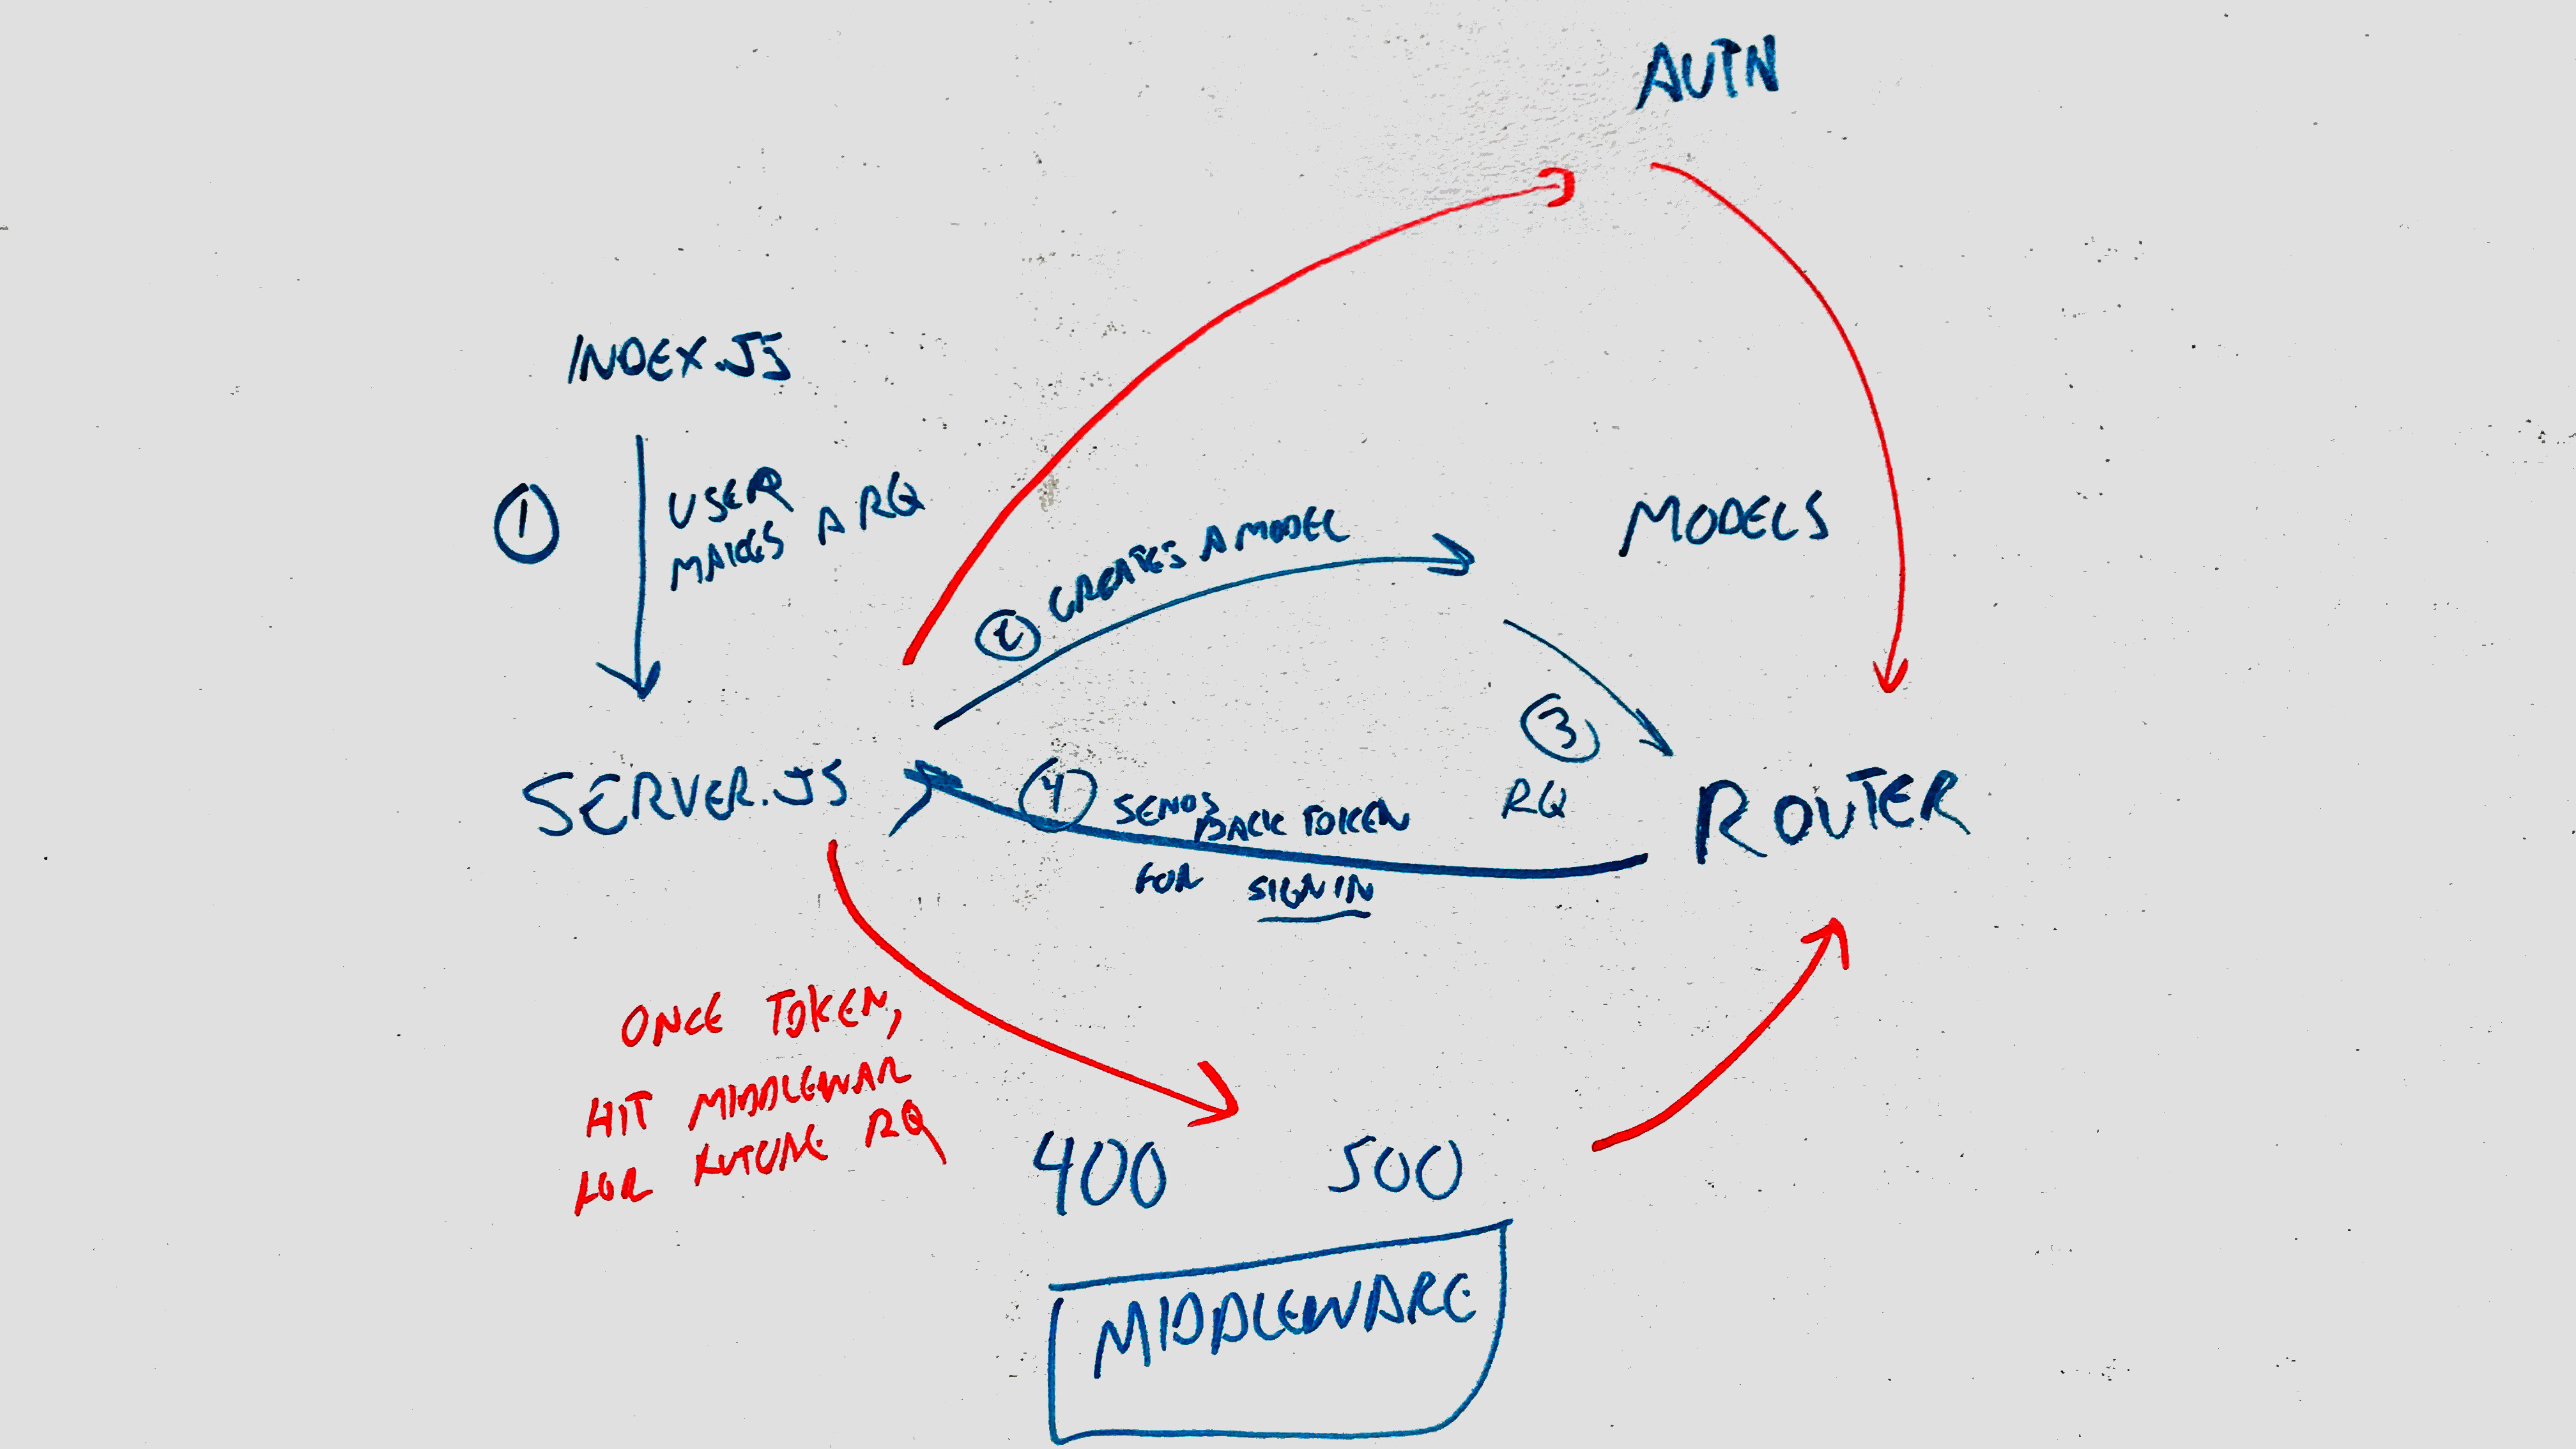 AUTH
INDEX.JS
1
USER
MAKES A RQ
2 CREATES A MODEL
MODELS
3
RQ
SERVER.JS
4 SENDS
BACK TOKEN
FOR SIGNIN
ROUTER
ONCE TOKEN,
HIT MIDDLEWAR
FOR FUTURE RQ
400 500
MIDDLEWARE